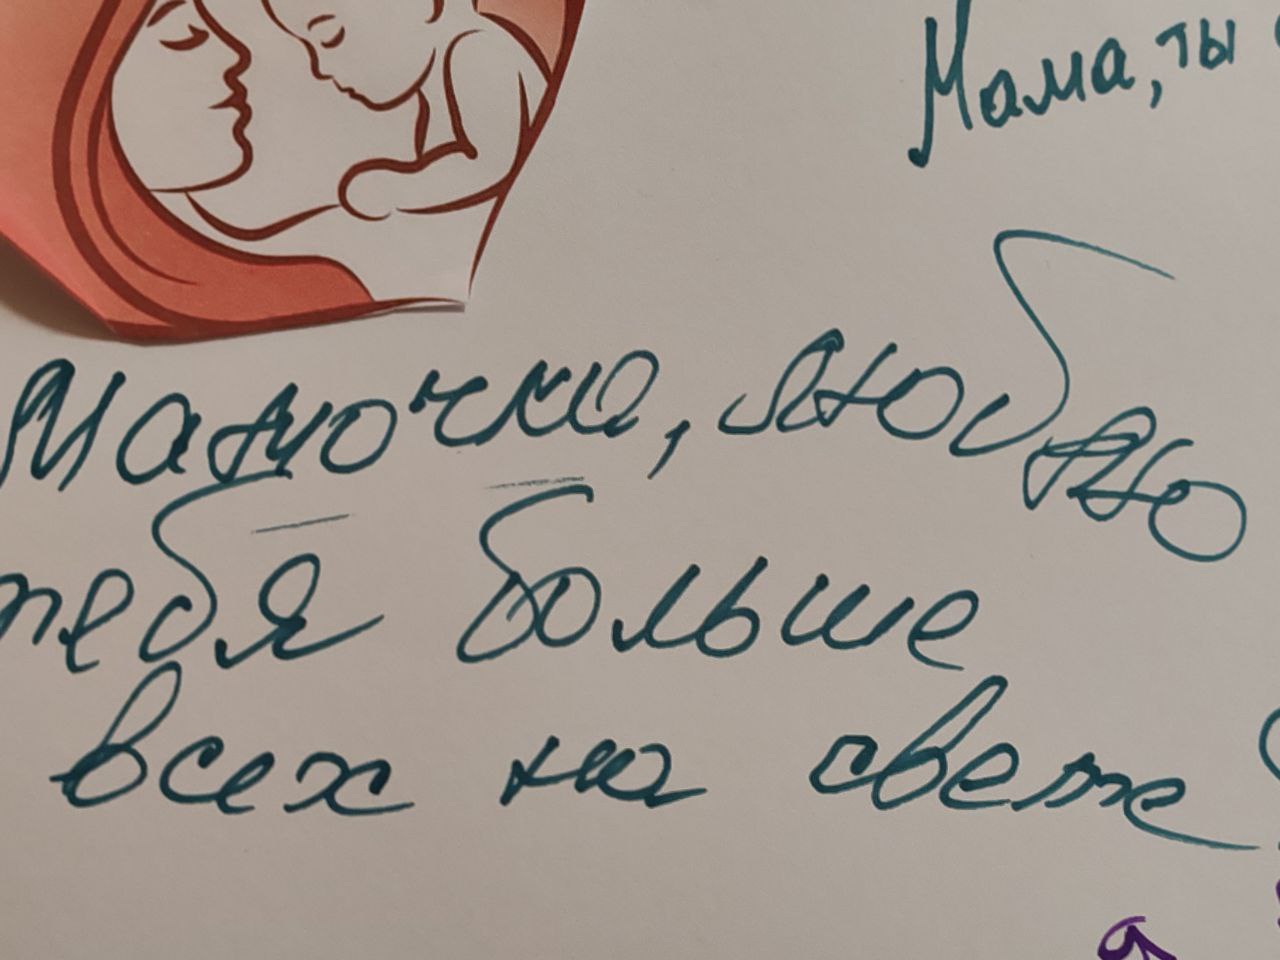 Мама, ты
Мамочка, люблю
тебя больше
всех на свете